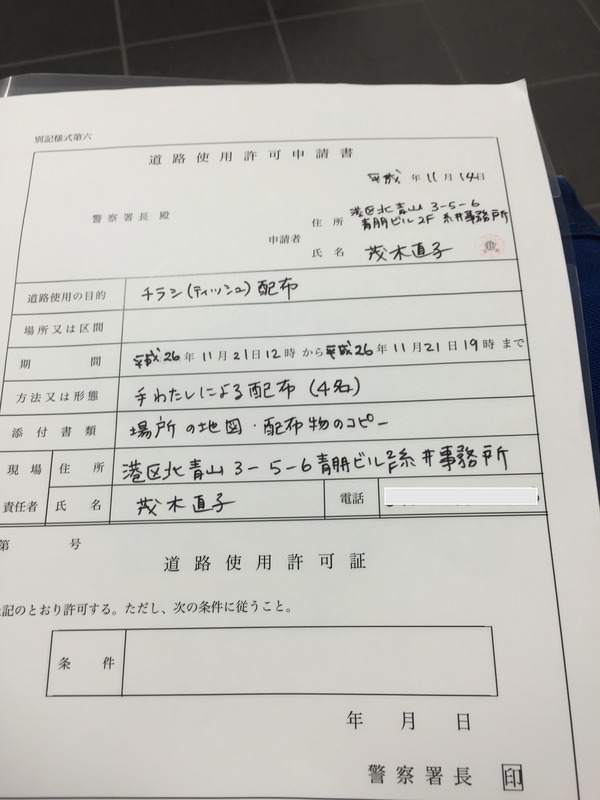 別記様式第六
道路使用許可申請書
平成 年 11月 14日
警察署長 殿
申請者
住所 港区北青山 3-5-6
青朋ビル2F 糸井事務所
氏名 茂木直子
道路使用の目的 チラシ(ティッシュ)配布
場所又は区間
期間 平成26年 11月 21日 12時 から 平成26年 11月 21日 19時 まで
方法又は形態 手わたしによる配布 (4名)
添付書類 場所の地図・配布物のコピー
現場責任者 住所 港区北青山 3-5-6 青朋ビル2F糸井事務所
氏名 茂木直子 電話
第 号
道路使用許可証
記のとおり許可する。ただし、次の条件に従うこと。
条件
年 月 日
警察署長 印